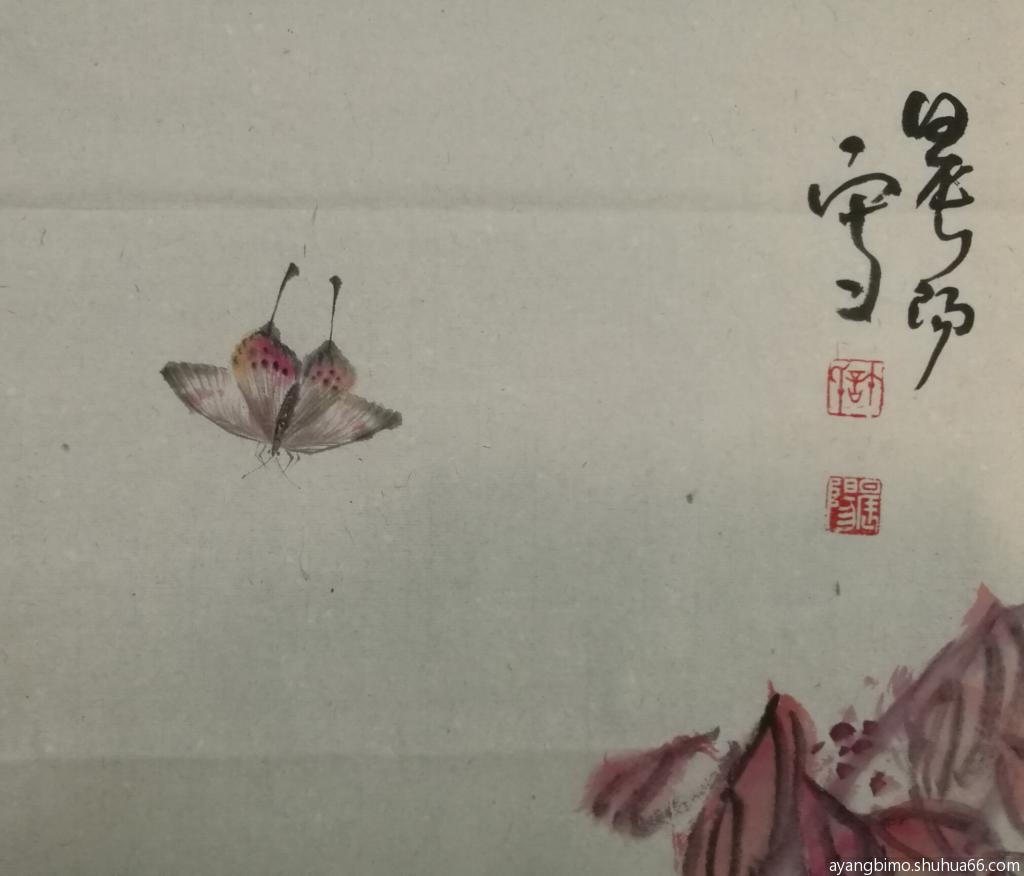 晨陽
写
晨陽
ayangbimo.shuhua66.com